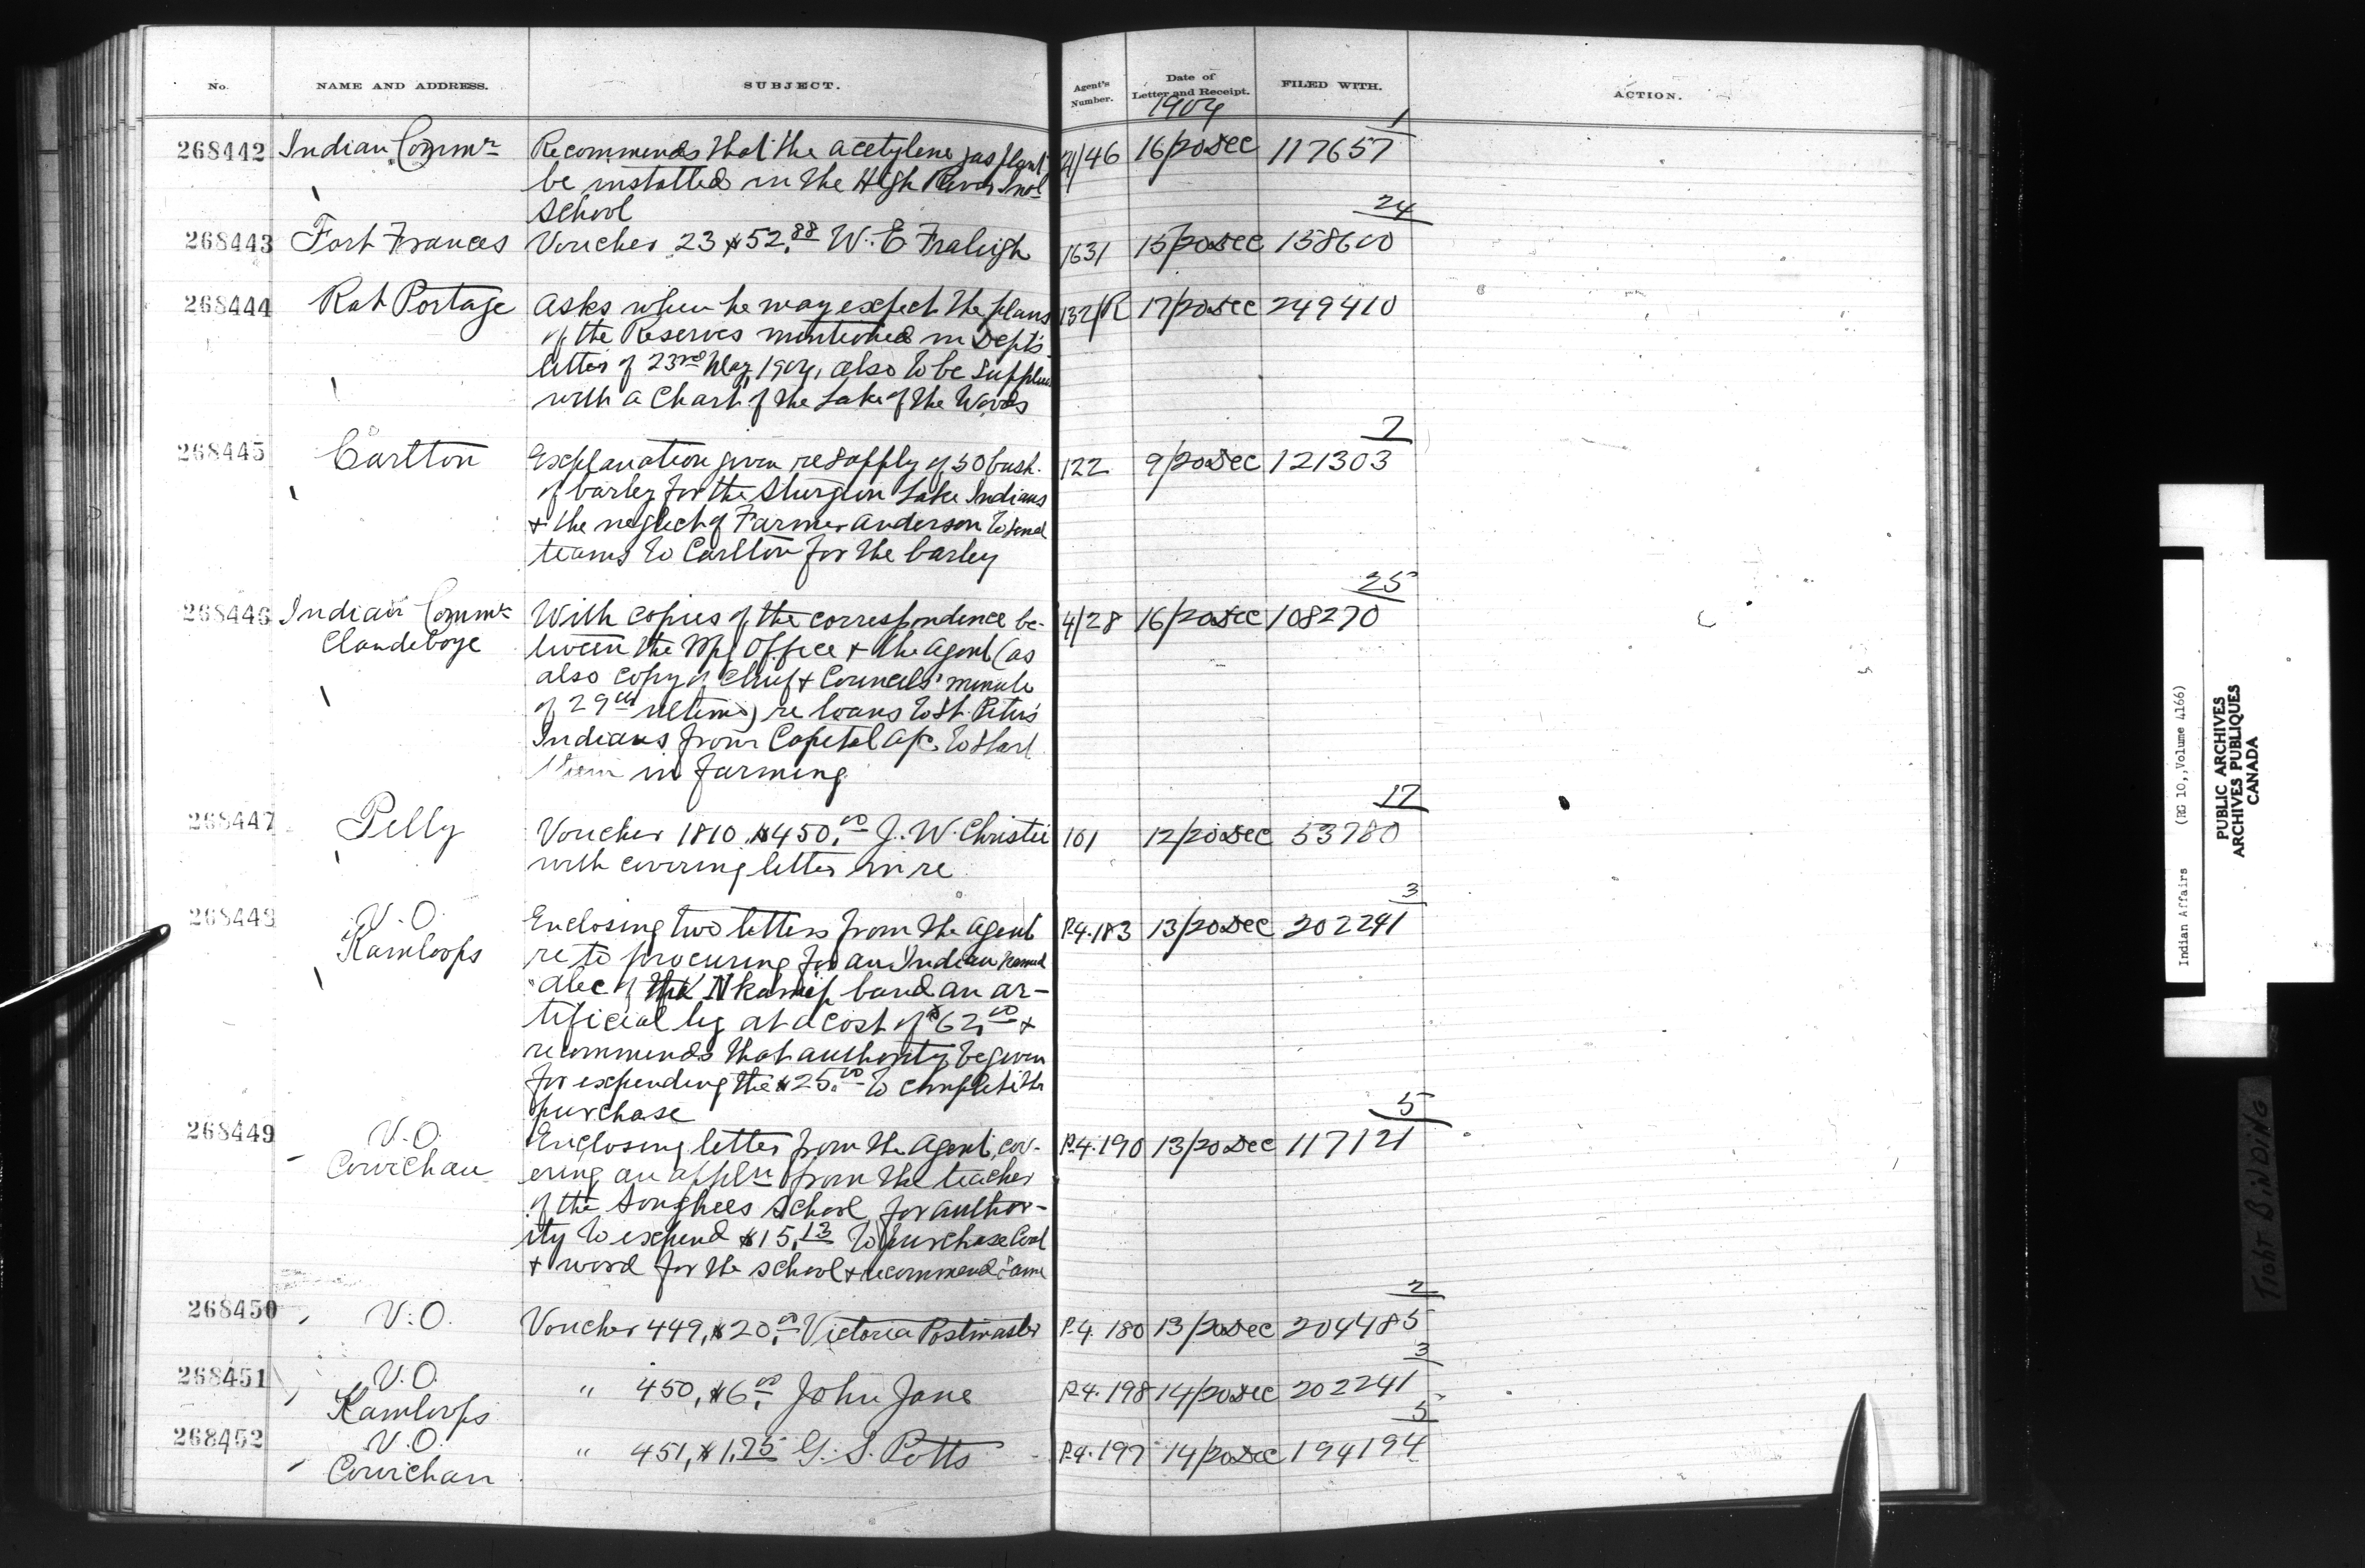 No. NAME AND ADDRESS. SUBJECT. Agent's Number. Date of Letter and Receipt. FILED WITH. ACTION.
1904
1
268442 Indian Commr Recommends that the acetylene gas plant 21/46 16/20 Dec 117657
be installed in the High River Indl
School
24
268443 Fort Frances Voucher 23 $52.88 W. E Fraleigh 1631 15/20 Dec 158600
268444 Rat Portage Asks when he may expect the plans 132/R 17/20 Dec 249410
of the Reserves mentioned in Dept's
letter of 23rd May 1904, also to be supplied
with a Chart of the Lake of the Woods
7
268445 Carlton Explanation given re supply of 50 bush. 122 9/20 Dec 121303
of barley for the Sturgeon Lake Indians
& the neglect of Farmer Anderson to send
teams to Carlton for the barley
25
268446 Indian Commr With copies of the correspondence be- 4/28 16/20 Dec 108270
Clandeboye tween the Wpg Office & the Agent (as
also copy of Chief & Councils' minute
of 29th ultimo) re loans to St. Peter's
Indians from Capital a/c. to start
them in farming
17
268447 Pelly Voucher 1810 $450.00 J. W. Christie 101 12/20 Dec 53780
with covering letter in re
3
268448 V.O. Enclosing two letters from the Agent P.4.183 13/20 Dec 202241
Kamloops re to procuring for an Indian named
Alec of the Nkamip band an ar-
tificial leg at a cost of $62.00 &
recommends that authority be given
for expending the $25.00 to complete the
purchase
5
268449 V.O. Enclosing letter from the Agent, cov- P.4.190 13/20 Dec 117121
Cowichan ering an appln from the teacher
of the Songhees School for author-
ity to expend $15.13 to purchase Coal
& wood for the school & recommend same
2
268450 V.O. Voucher 449, $20.00 Victoria Postmaster P.4.180 13/20 Dec 204485
3
268451 V.O. " 450, $6.00 John Jane P.4.198 14/20 Dec 202241
Kamloops
5
268452 V.O. " 451, $1.75 G. S. Potts P.4.197 14/20 Dec 194194
Cowichan
Indian Affairs (RG 10, Volume 4166)
PUBLIC ARCHIVES
ARCHIVES PUBLIQUES
CANADA
TIGHT BINDING